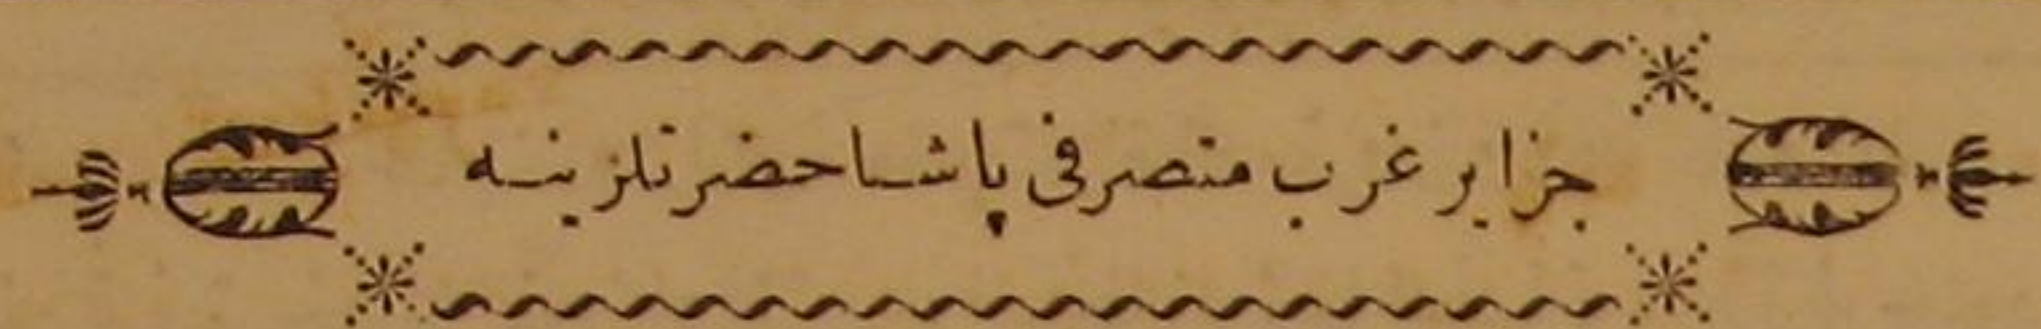 جزایر غرب متصرفی پاشا حضرتلرینه